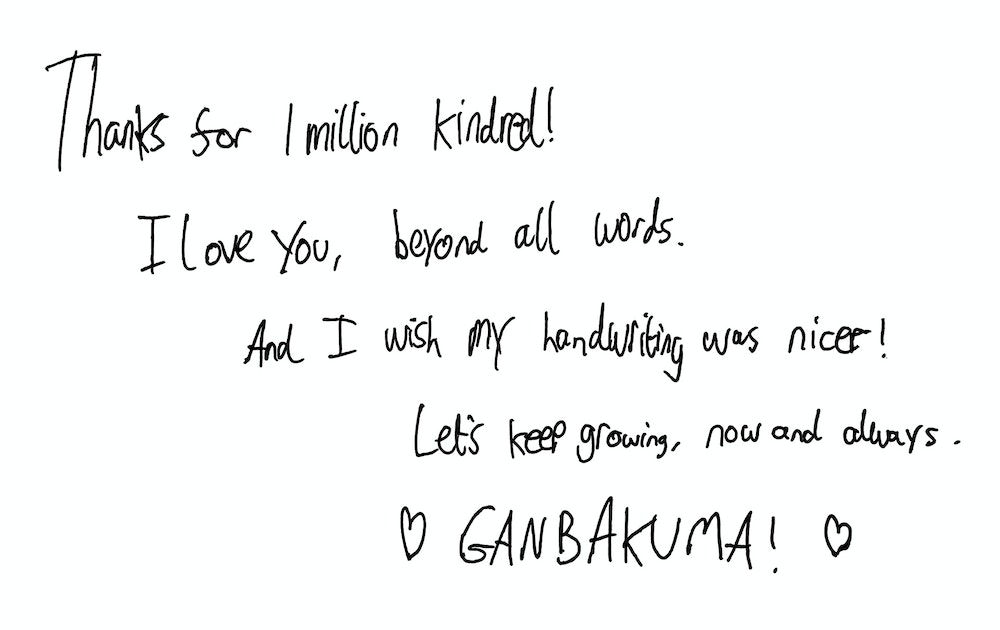 Thanks for 1 million kindred!
I love you, beyond all words.
And I wish my handwriting was nicer!
Let's keep growing, now and always.
♡ GANBAKUMA! ♡